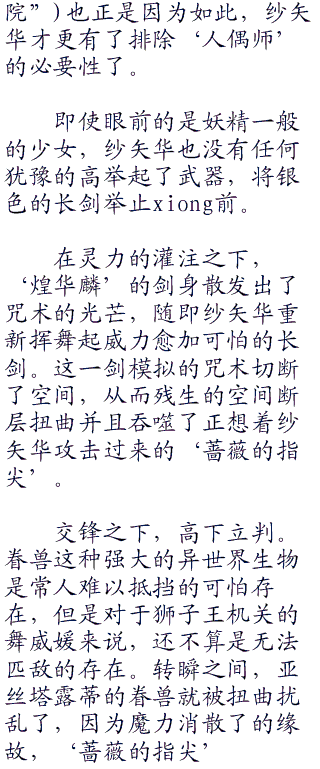 院”)也正是因为如此，纱矢
华才更有了排除‘人偶师’
的必要性了。
即使眼前的是妖精一般
的少女，纱矢华也没有任何
犹豫的高举起了武器，将银
色的长剑举止xiong前。
在灵力的灌注之下，
‘煌华麟’的剑身散发出了
咒术的光芒，随即纱矢华重
新挥舞起威力愈加可怕的长
剑。这一剑模拟的咒术切断
了空间，从而残生的空间断
层扭曲并且吞噬了正想着纱
矢华攻击过来的‘蔷薇的指
尖’。
交锋之下，高下立判。
眷兽这种强大的异世界生物
是常人难以抵挡的可怕存
在，但是对于狮子王机关的
舞威媛来说，还不算是无法
匹敌的存在。转瞬之间，亚
丝塔露蒂的眷兽就被扭曲扰
乱了，因为魔力消散了的缘
故，‘蔷薇的指尖’